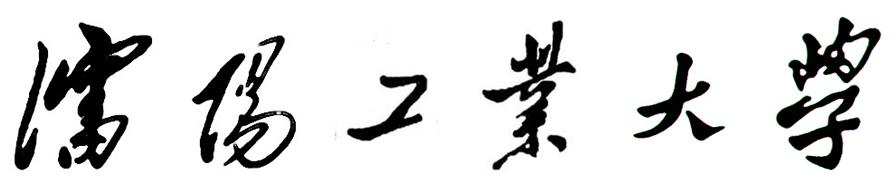 瀋陽工業大學